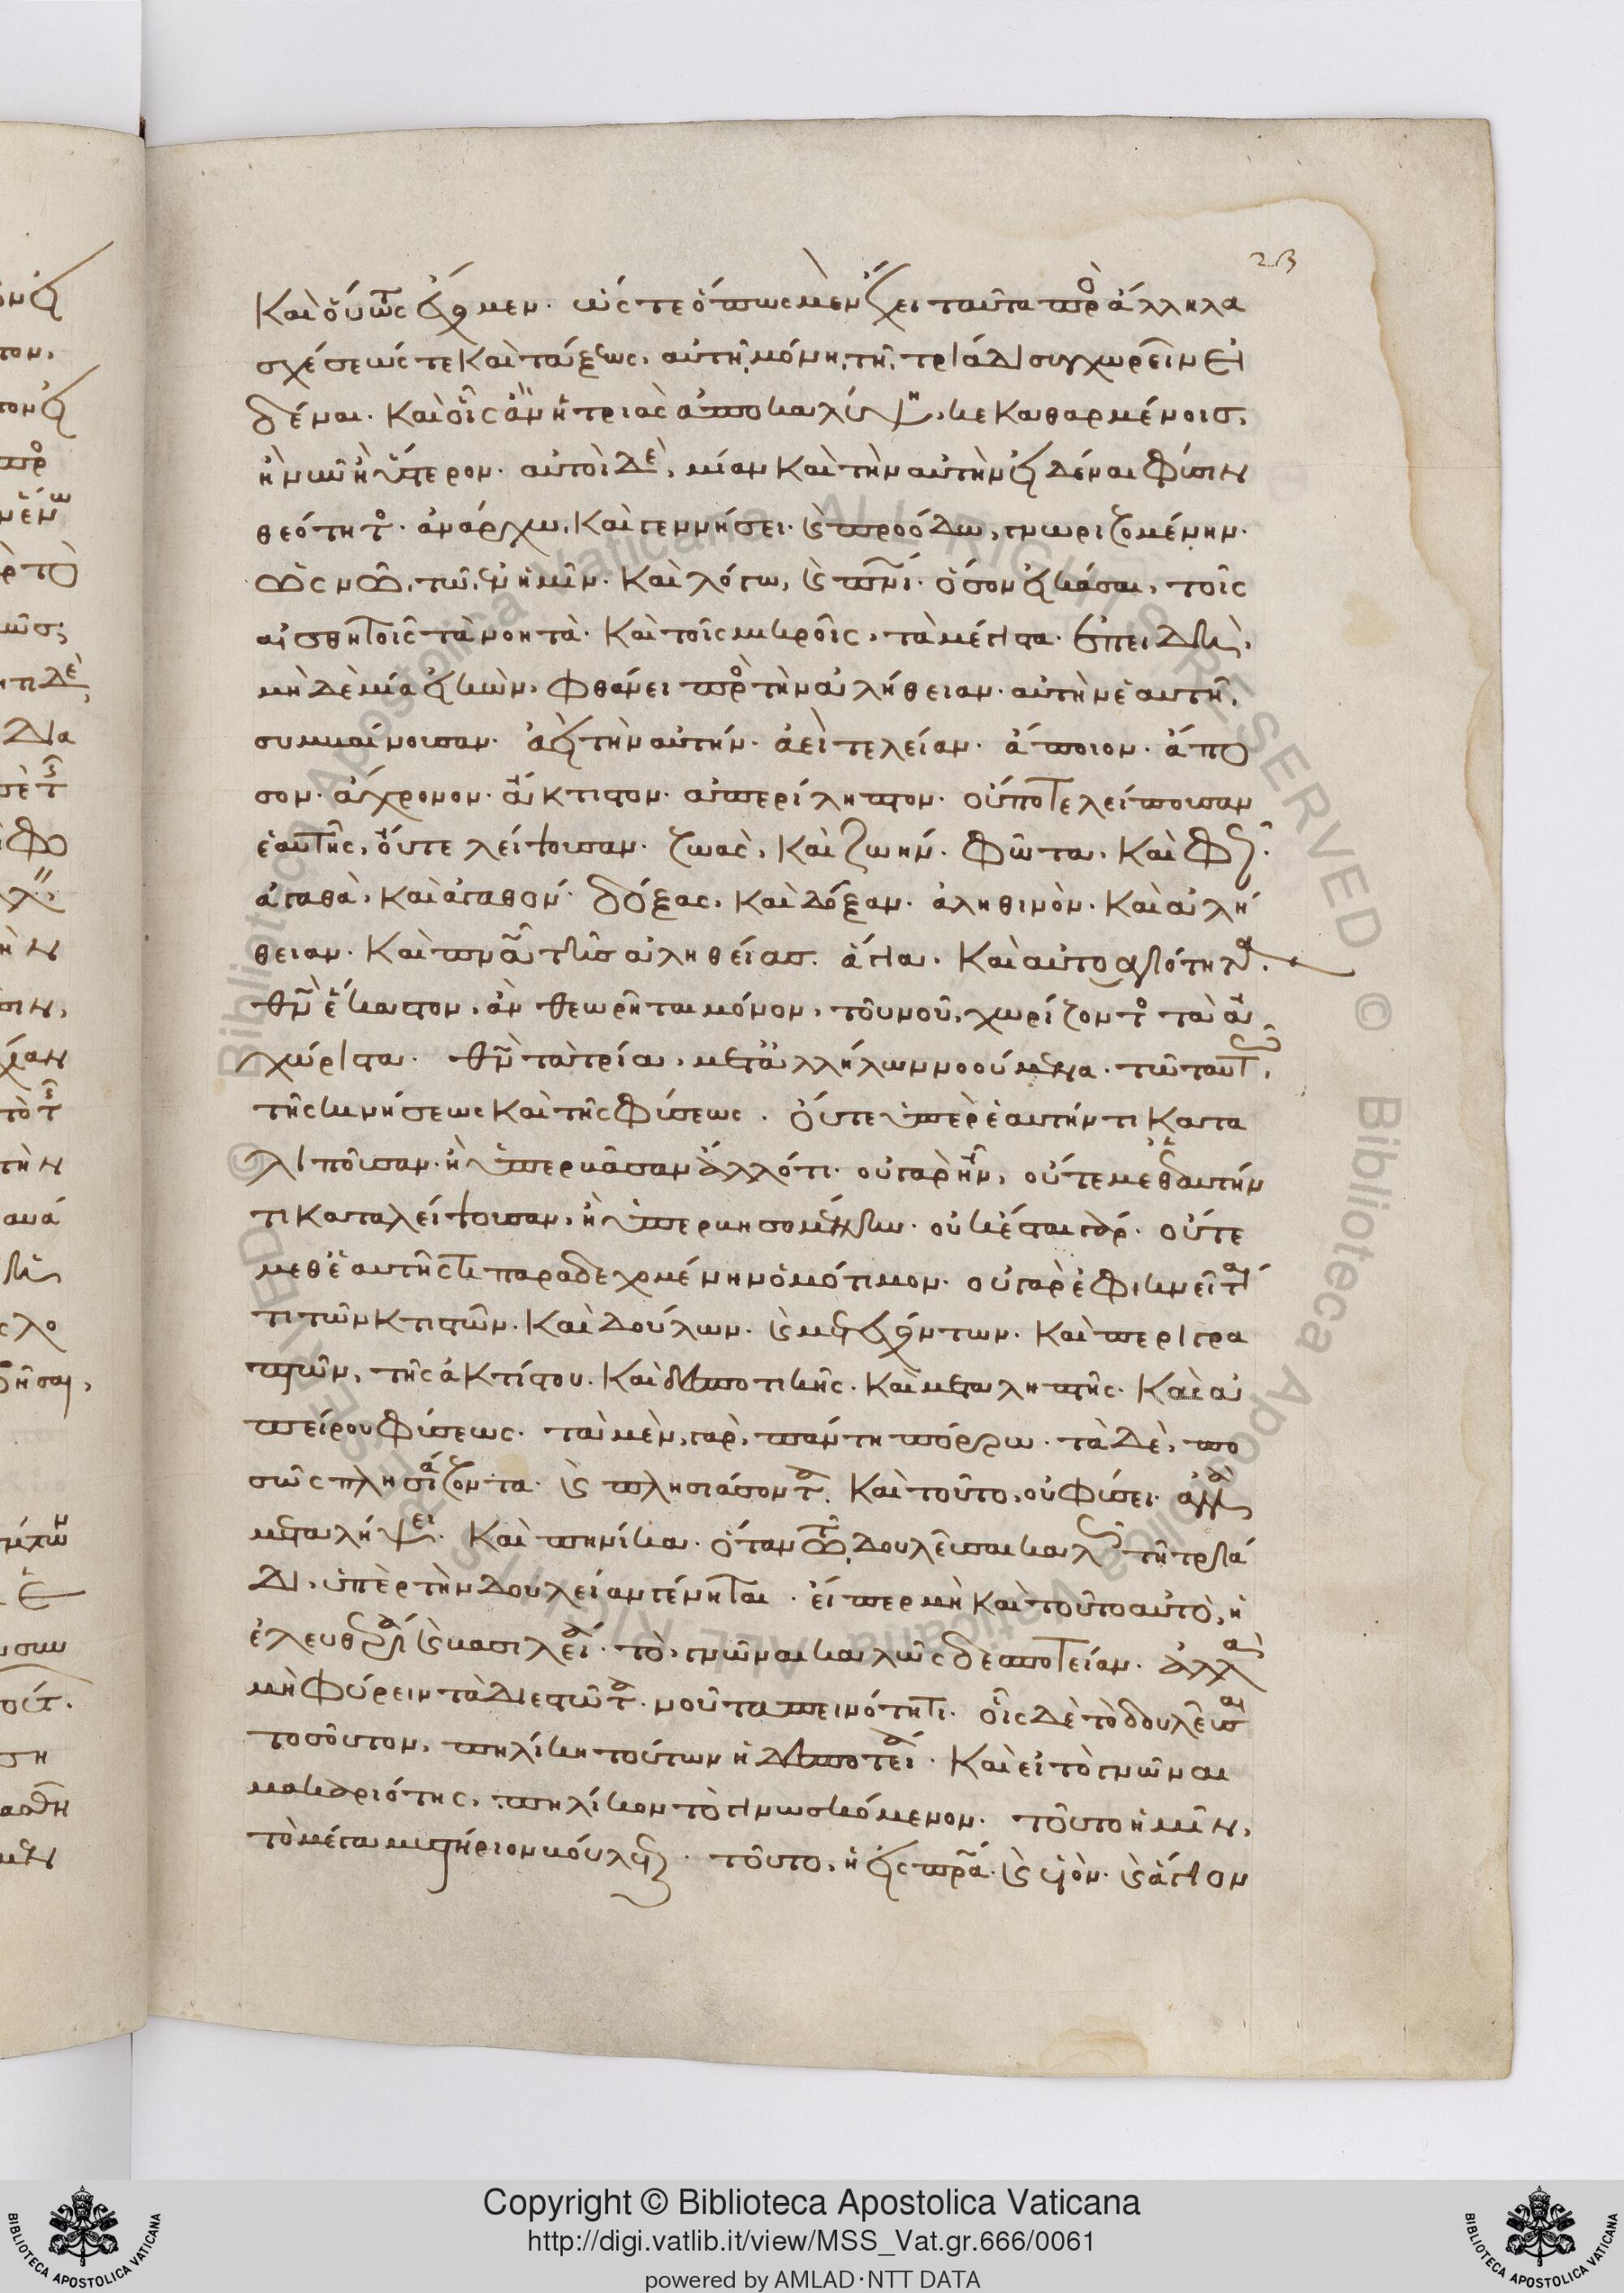 23
καὶ ὄντως ἔχομεν. ὥστε ὅπως μὲν ἔχει ταῦτα πρὸς ἄλληλα
σχέσεώς τε καὶ τάξεως, αὐτῇ μόνῃ τῇ τριάδι συγχωρεῖν εἰ
δέναι. καὶ οἷς ἂν ἡ τριὰς ἀποκαλύψῃ, κεκαθαρμένοις,
ἢ νῦν ἢ ὕστερον. αὐτοὶ δὲ, μίαν καὶ τὴν αὐτὴν εἰδέναι φύσιν
θεότητος. ἀνάρχω, καὶ γεννήσει. καὶ προόδω, γνωριζομένην.
ὡς νῷ, τῷ ἐν ἡμῖν. καὶ λόγω, καὶ πνεύματι. ὅσον εἰκάσαι, τοῖς
αἰσθητοῖς τὰ νοητὰ. καὶ τοῖς μικροῖς, τὰ μέγιστα. ἐπειδὴ,
μὴ δὲ μία εἰκὼν, φθάνει πρὸς τὴν ἀλήθειαν. αὐτὴν ἑαυτῇ,
συμβαίνουσαν. ἀεὶ τὴν αὐτήν. ἀεὶ τελείαν. ἄποιον. ἄπο
σον. ἄχρονον. ἄκτιστον. ἀπερίληπτον. οὔποτε λείπουσαν
ἑαυτῆς, οὔτε λείψουσαν. ζωὰς, καὶ ζωήν. φῶτα, καὶ φῶς.
ἀγαθὰ, καὶ ἀγαθόν. δόξας, καὶ δόξαν. ἀληθινὸν. καὶ ἀλή
θειαν. καὶ πνεῦμα τῆς ἀληθείας. ἅγια, καὶ αὐτοαγιότητα.
θεὸν ἕκαστον, ἂν θεωρῆται μόνον, τοῦ νοῦ, χωρίζοντος τὰ ἀ
χώριστα. θεὸν τὰ τρία, μετ' ἀλλήλων νοούμενα. τῷ ταυτῷ,
τῆς κινήσεως καὶ τῆς φύσεως. οὔτε ὑπὲρ ἑαυτήν τι κατα
λιποῦσαν. ἢ ὑπερβᾶσαν ἄλλό τι. οὐ γὰρ ἦν, οὔτε μεθ' ἑαυτήν
τι καταλείψουσαν, ἢ ὑπερβησομένην. οὐκ ἔσται γάρ. οὔτε
μεθ' ἑαυτῆς τι παραδεχομένην ὁμότιμον. οὐ γὰρ ἐφικνεῖταί
τι τῶν κτιστῶν. καὶ δούλων. καὶ μετεχόντων. καὶ περιγρα
πτῶν, τῆς ἀκτίστου. καὶ δεσποτικῆς. καὶ μεταληπτῆς. καὶ ἀ
πείρου φύσεως. τὰ μὲν, γὰρ, πάντη πόρρω. τὰ δὲ, πο
σῶς πλησιάζοντα. καὶ πλησιάσοντα. καὶ τοῦτο, οὐ φύσει. ἀλλὰ
μεταλήψει. καὶ πηνίκα. ὅταν τῷ δουλεῦσαι καλῶς τῇ τριά
δι, ὑπὲρ τὴν δουλείαν γένηται. εἴπερ μὴ καὶ τοῦτο αὐτὸ, ἡ
ἐλευθερία καὶ βασιλεία. τὸ, γνῶναι καλῶς δεσποτείαν. ἀλλὰ
μὴ φύρειν τὰ διεστῶτα. νοῦ ταπεινότητι. οἷς δὲ τὸ δουλεῦσαι
τοσοῦτον, πηλίκη τούτων ἡ δεσποτεία. καὶ εἰ τὸ γνῶναι
μακαριότης, πηλίκον τὸ γινωσκόμενον. τοῦτο ἡμῖν,
τὸ μέγα μυστήριον βούλεται. τοῦτο, ἡ εἰς πατέρα. καὶ υἱὸν. καὶ ἅγιον
Copyright © Biblioteca Apostolica Vaticana
http://digi.vatlib.it/view/MSS_Vat.gr.666/0061
powered by AMLAD·NTT DATA
BIBLIOTECA APOSTOLICA VATICANA
BIBLIOTECA APOSTOLICA VATICANA